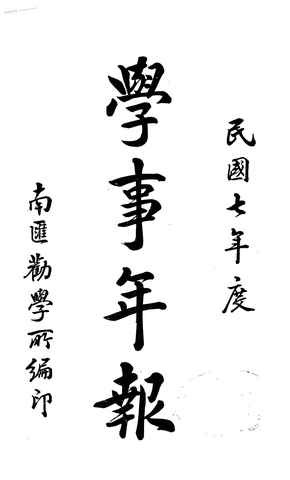 民國七年度
學事年報
南匯勸學所編印